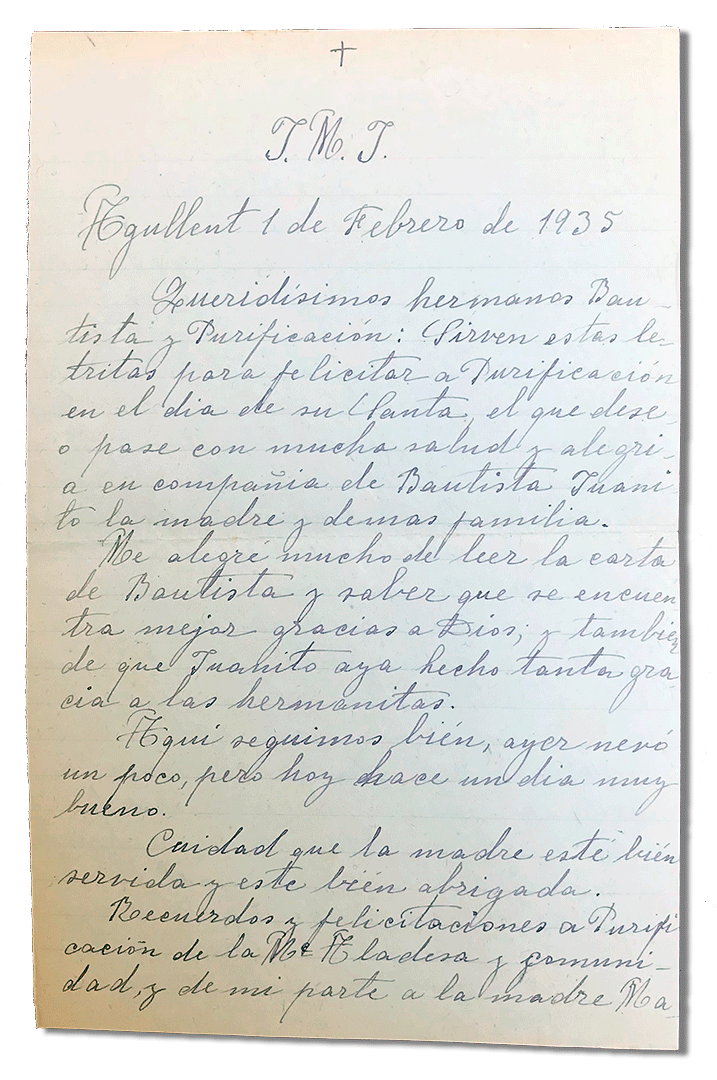 +
J. M. J.
Agullent 1 de Febrero de 1935
Queridísimos hermanos Bau-
tista y Purificación: Sirven estas le-
tritas para felicitar a Purificación
en el dia de su Santa, el que dese-
o pase con mucha salud y alegri-
a en compañia de Bautista Juani-
to la madre y demas familia.
Me alegré mucho de leer la carta
de Bautista y saber que se encuen
tra mejor gracias a Dios; y tambien
de que Juanito aya hecho tanta gra-
cia a las hermanitas.
Aqui seguimos bién, ayer nevó
un poco, pero hoy hace un dia muy
bueno.
Cuidad que la madre esté bién
servida y este bién abrigada.
Recuerdos y felicitaciones a Purifi
cación de la Me Abadesa y comuni-
dad, y de mi parte a la madre Ma-